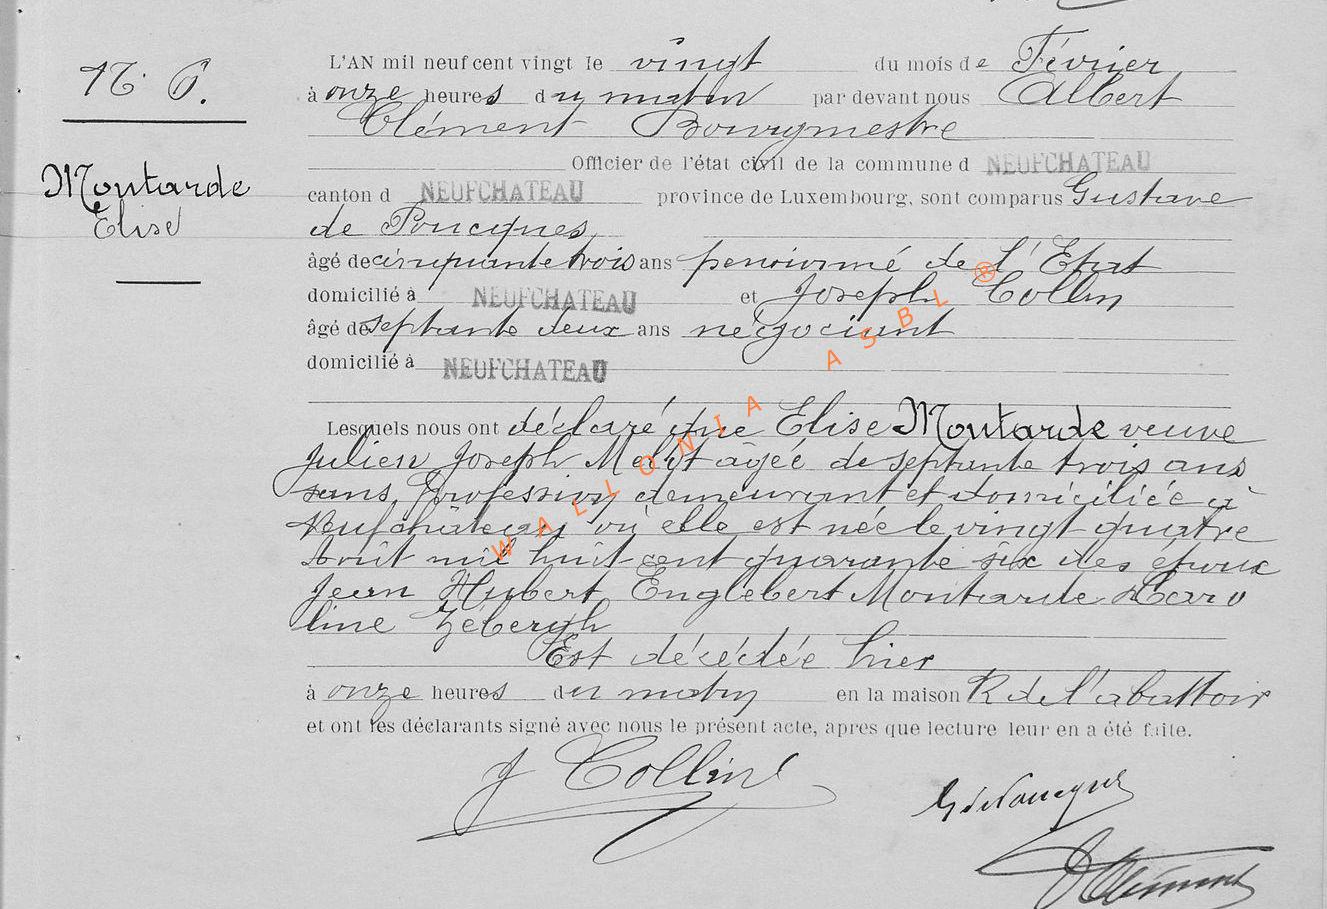 N° 6.
Moutarde
Elise
L'AN mil neuf cent vingt le vingt du mois de Février
à onze heures du matin par devant nous Albert
Clément Bourgmestre
Officier de l'état civil de la commune d NEUFCHATEAU
canton d NEUFCHATEAU province de Luxembourg, sont comparus Gustave
de Poucques
âgé de cinquante trois ans pensionné de l'Etat
domicilié à NEUFCHATEAU et Joseph Collin
âgé de septante deux ans négociant
domicilié à NEUFCHATEAU
Lesquels nous ont déclaré que Elise Moutarde veuve
Julien Joseph âgée de septante trois ans
sans profession demeurant et domiciliée à
Neufchâteau où elle est née le vingt quatre
Août mil huit cent quarante six des époux
Jean Hubert Englebert Moutarde & Caro
line
Est décédée hier
à onze heures du matin en la maison R de l'abattoir
et ont les déclarants signé avec nous le présent acte, apres que lecture leur en a été faite.
J Collin
G de Poucques
A Clément
WALLONIA ASBL ®